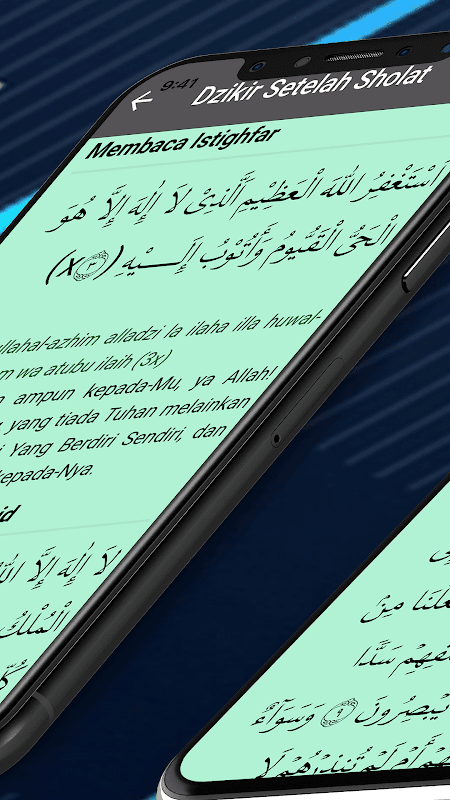 9:41
Dzikir Setelah Sholat
Membaca Istighfar
أَسْتَغْفِرُ اللهَ الْعَظِيْمِ الَّذِيْ لَا إِلٰهَ إِلَّا هُوَ
الْحَيُّ الْقَيُّومُ وَأَتُوْبُ إِلَــــيْهِ (x٣)
alladzi la ilaha illa huwal-
wa atubu ilaih (3x)
ampun kepada-Mu, ya Allah!
yang tiada Tuhan melainkan
Yang Berdiri Sendiri, dan
kepada-Nya.
لَا إِلٰهَ إِلَّا
الْمُلْكُ
مِنْ
سَدًّا
يُبْصِرُونَ ۝٩ وَسَوَاءٌ
أَمْ لَمْ تُنذِرْهُمْ لَا